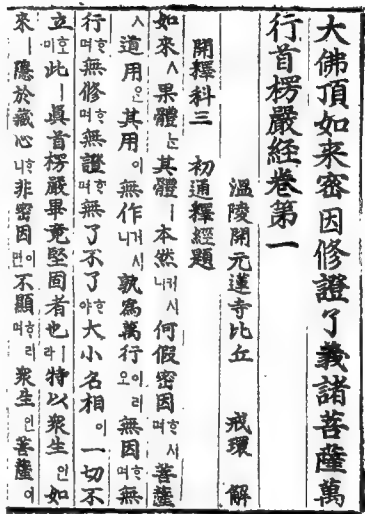 大佛頂如来密因修證了義諸菩薩萬
行首楞嚴経卷第一
溫陵開元蓮寺比丘 戒環 解
開釋科三 初通釋經題
如來ㅅ果體ᄂᆞᆫ其體ㅣ本然커시니何假密因ᄒᆞ시며菩薩
ㅅ道用ᄋᆞᆫ其用이無作거시니孰爲萬行이리오無因ᄒᆞ며無
行ᄒᆞ며無修ᄒᆞ며無證ᄒᆞ며無了不了ᄒᆞ야大小名相이一切不
立호미此ㅣ眞首楞嚴畢竟堅固者也ㅣ라特以衆生인如
來ㅣ隱於藏心ᄒᆞ니非密因이면不顯ᄒᆞ리며衆生인菩薩이